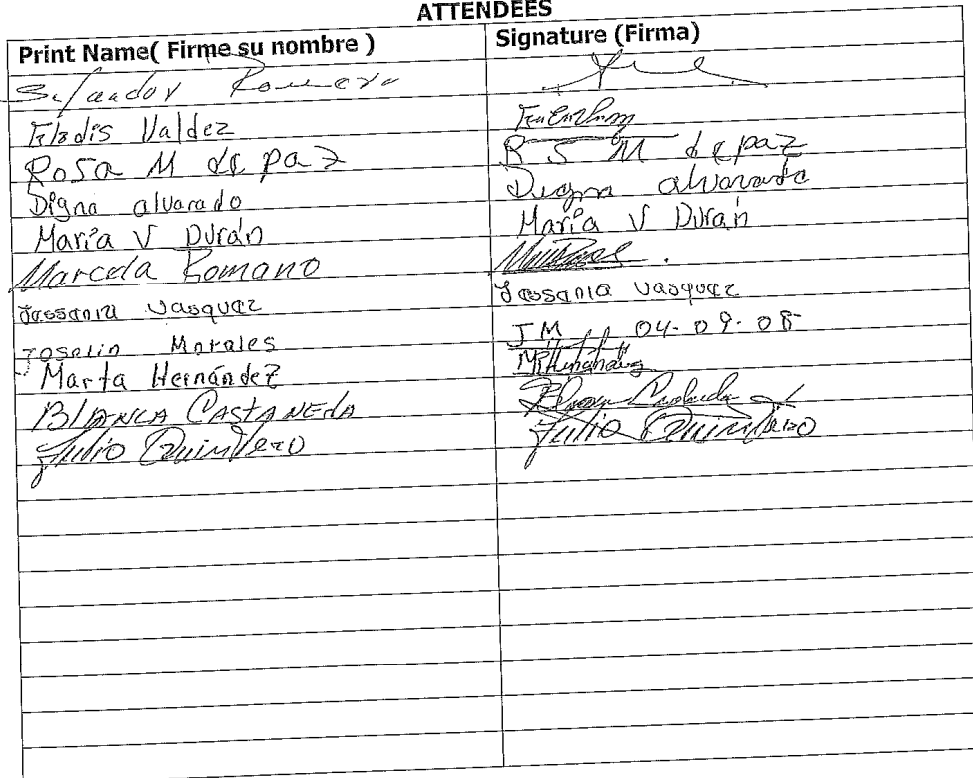 ATTENDEES
Print Name( Firme su nombre ) Signature (Firma)
Salvador Romero
Valdez
Rosa M de paz R S M de paz
Digna alvarado Digna alvarado
María V Durán María V Durán
Marcela Romano
Jessania Vasquez Jessania Vasquez
Joselin Morales JM 04-09-08
Marta Hernández MHernández
BlANCA CASTANEDA Blanca Castaneda
Julio Quintero Julio Quintero